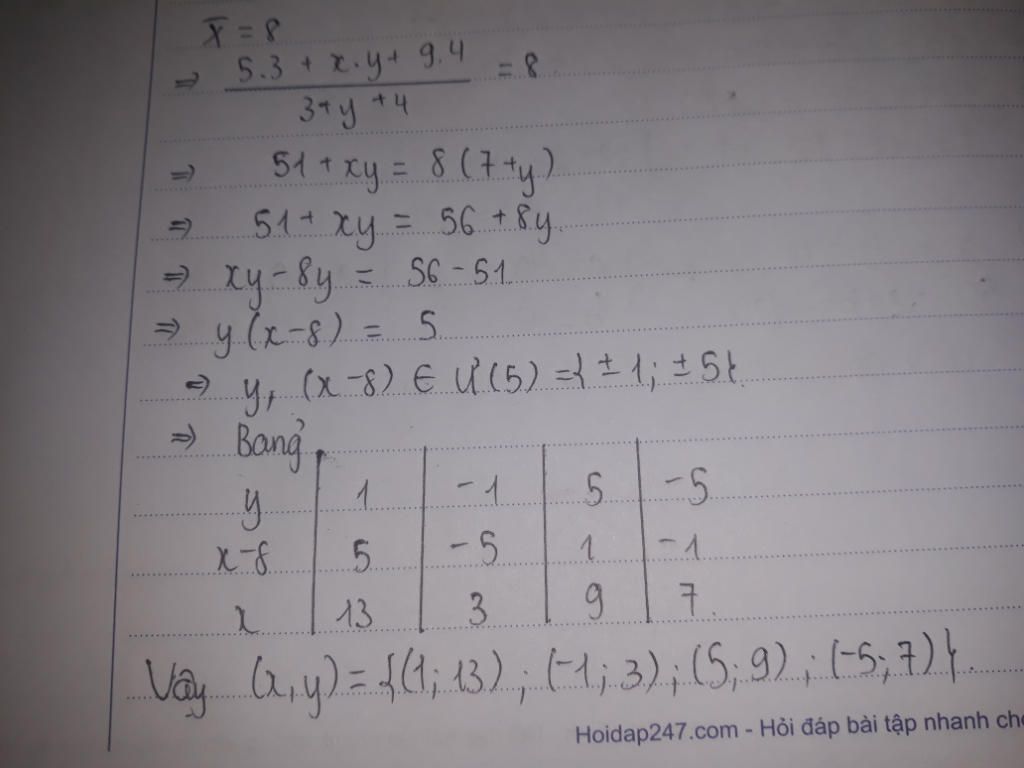 X̄ = 8
⇒ (5.3 + x.y + 9.4) / (3+y+4) = 8
⇒ 51 + xy = 8(7+y)
⇒ 51 + xy = 56 + 8y.
⇒ xy - 8y = 56 - 51.
⇒ y(x-8) = 5.
⇒ y, (x-8) ∈ Ư(5) = {±1; ±5}.
⇒ Bảng
y | 1 | -1 | 5 | -5
x-8 | 5 | -5 | 1 | -1
x | 13 | 3 | 9 | 7.
Vậy (x,y) = {(1; 13) ; (-1; 3) ; (5; 9) ; (-5; 7)}.
Hoidap247.com - Hỏi đáp bài tập nhanh